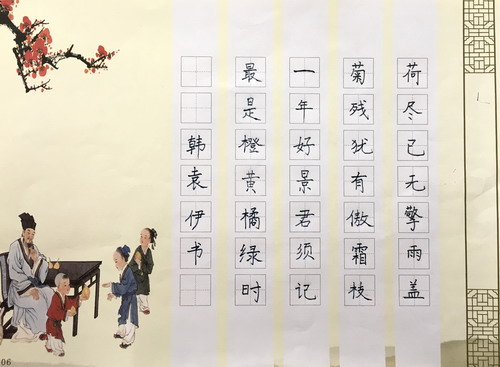 荷尽已无擎雨盖
菊残犹有傲霜枝
一年好景君须记
最是橙黄橘绿时
韩袁伊书
06